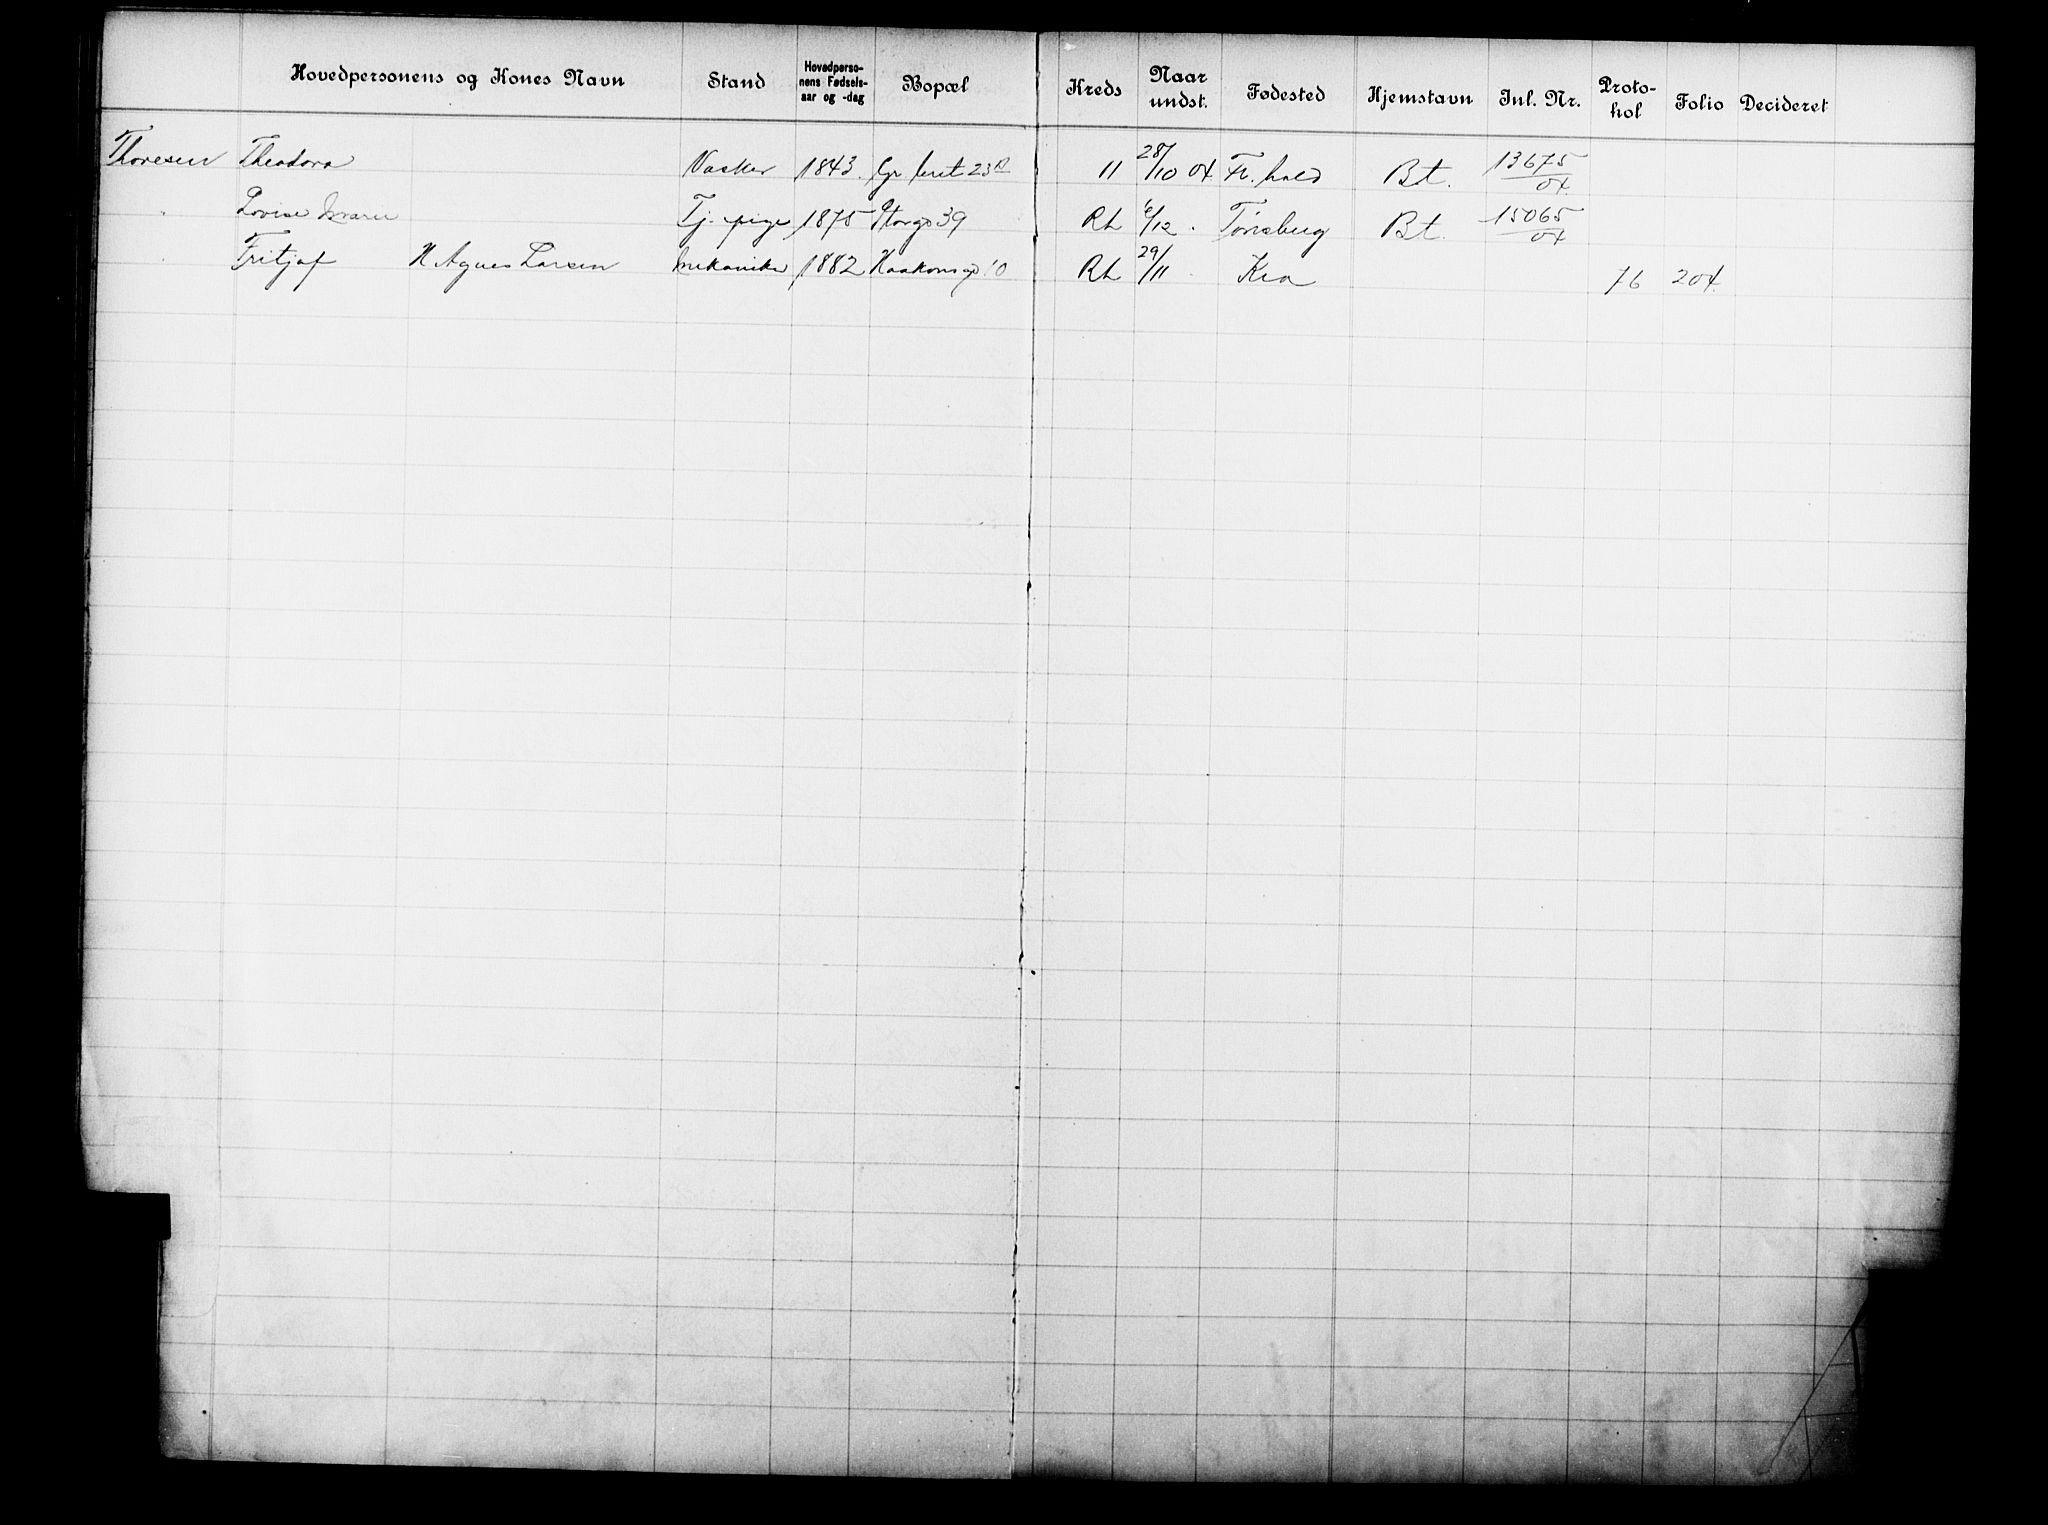 Hovedpersonens og Kones Navn Stand Hovedpersonens Fødselsaar og -dag Bopæl Kreds Naar undst. Fødested Hjemstavn Inl. Nr. Protokol Folio Decideret
Thoresen Theodora Vasker 1843. Gr leret 23 B 11 28/10 04 Fr.hald Bt. 13675/04
" Lovise Marie Tj. pige 1875 Storgd 39 Rh 6/12 " Tønsberg Bt. 15065/04
" Fritjof H. Agnes Larsen Mekaniker 1882 Haakonsgd 10 Rh 29/11 " Kra 76 204.